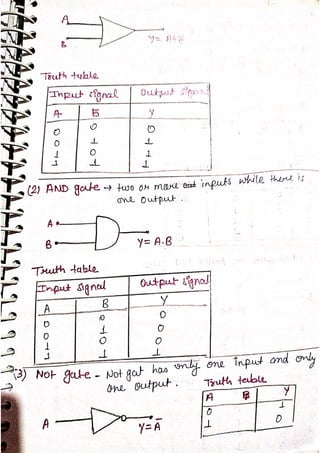 A
B
Y= A+B
Truth table
Input signal Output signal
A B Y
0 0 0
0 1 1
1 0 1
1 1 1
(2) AND gate → two or more inputs while there is
one output.
A
B
Y= A.B
Truth table
Input signal Output signal
A B Y
0 0 0
0 1 0
1 0 0
1 1 1
(3) Not gate - Not gat has only one input and only
one output.
Truth table
A B Y
0 1
1 0
A
Y=A̅